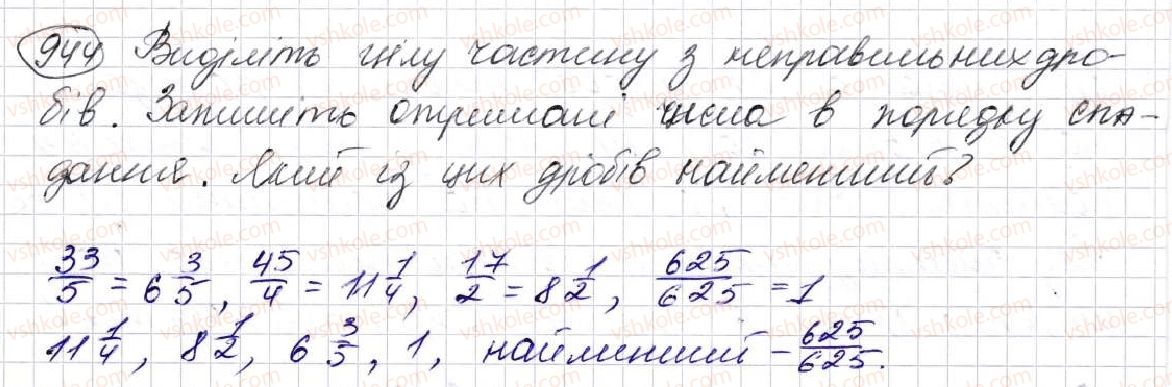 944 Виділіть цілу частину з неправильних дро-
бів. Запишіть отримані числа в порядку спа-
дання. Який із цих дробів найменший?
33/5 = 6 3/5, 45/4 = 11 1/4, 17/2 = 8 1/2, 625/625 = 1
11 1/4, 8 1/2, 6 3/5, 1, найменший – 625/625.